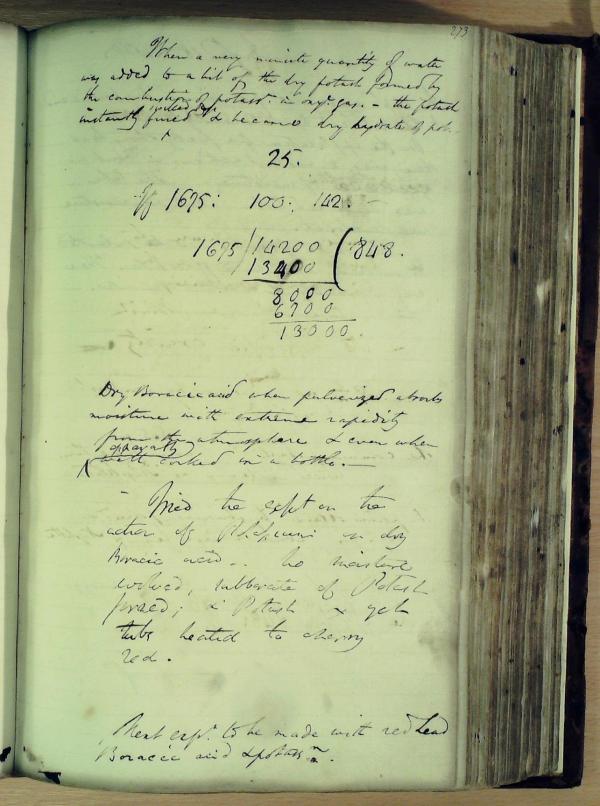 273
When a very minute quantity of water
was added to a bit of the dry potash formed by
the combustion of potassm. in oxye. gas. - the potash
instantly fused & became dry hydrate of pot.
25.
If 1675: 100: 142. -
1675/14200(848.
13400
8000
6700
13000.
Dry Boracic acid when pulverized absorbs
moisture with extreme rapidity
from the atmosphere & even when
well corked in a bottle. —
- Tried the expt on the
action of on dry
Boracic acid.. no moisture
evolved, subborate of Potash
formed; & Potash &
tube heated to cherry
red.
Next expt. to be made with red Lead
Boracic acid & potassm.